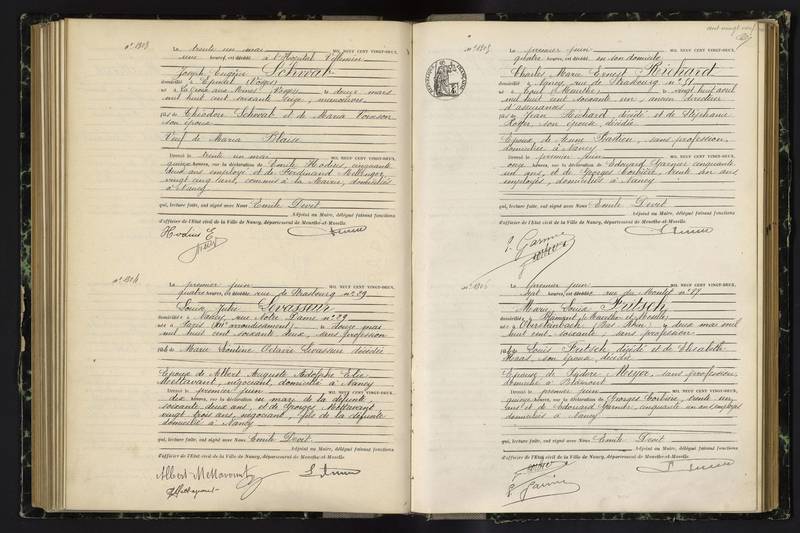 n° 1303
Le trente un mai MIL NEUF CENT VINGT-DEUX,
une heures, est décédé à l'hôpital Villemin
Joseph Eugène Schwab
domicilié à Epinal (Vosges)
né à La Croix aux Mines (Vosges) le douze mars
mil huit cent soixante seize, manoeuvre,
fils de Théodore Schwab et de Maria Voinson
son épouse
Veuf de Maria Blaise
Dressé le trente un mai MIL NEUF CENT VINGT-DEUX,
quinze heures, sur la déclaration de Emile Hodies, cinquante
ans employé et de Ferdinand
vingt cinq ans, commis à la Mairie, domiciliés
à Nancy
qui, lecture faite, ont signé avec Nous Emile Devit
Adjoint au Maire, délégué faisant fonctions
d'officier de l'Etat civil de la Ville de Nancy, département de Meurthe-et-Moselle.
n° 1304
Le premier juin MIL NEUF CENT VINGT-DEUX,
quatre heures, est décédée rue de Strasbourg n° 29
Louise Julie Levasseur
domiciliée à Nancy, rue Notre Dame n° 29
née à Paris (arrondissement) le douze mai
mil huit cent soixante deux, sans profession
fille de Marie Octavie Levasseur décédée
Epouse de Albert Auguste Adolphe Elie
Mettavant, négociant, domicilié à Nancy
Dressé le premier juin MIL NEUF CENT VINGT-DEUX,
dix heures, sur la déclaration du mari de la défunte,
soixante deux ans, et de Georges Mettavant
vingt trois ans, négociant, fils de la défunte
domicilié à Nancy
qui, lecture faite, ont signé avec Nous Emile Devit
Adjoint au Maire, délégué faisant fonctions
d'officier de l'Etat civil de la Ville de Nancy, département de Meurthe-et-Moselle.
Albert Mettavant
n° 1305
Le premier juin MIL NEUF CENT VINGT-DEUX,
quatre heures, est décédé en son domicile
Charles Marie Ernest Richard
domicilié à Nancy, rue de Strasbourg n° 51
né à Toul (Meurthe) le vingt huit avril
mil huit cent soixante un, ancien directeur
d'assurances
fils de Jean Richard, décédé et de Stéphanie
Roger, son épouse, décédée
Epoux de Jeanne Badieu, sans profession,
domiciliée à Nancy
Dressé le premier juin MIL NEUF CENT VINGT-DEUX,
onze heures, sur la déclaration de Edouard Garnier cinquante
un ans, et de Georges Corbière, trente un ans
employés, domiciliés à Nancy
qui, lecture faite, ont signé avec Nous Emile Devit
Adjoint au Maire, délégué faisant fonctions
d'officier de l'Etat civil de la Ville de Nancy, département de Meurthe-et-Moselle.
n° 1306
Le premier juin MIL NEUF CENT VINGT-DEUX,
sept heures, est décédée rue du Montet n° 97
Marie Louise Fritsch
domiciliée à Blâmont (Meurthe et Moselle)
née à Obersteinbach (Bas Rhin) le deux mai mil
huit cent soixante sans profession
fille de Louis Fritsch, décédé et de Elisabeth
Haas, son épouse, décédée
Epouse de Isidore Meyer, sans profession
domicilié à Blâmont
Dressé le premier juin MIL NEUF CENT VINGT-DEUX,
quinze heures, sur la déclaration de Georges Corbière, trente un
ans et de Edouard Garnier, cinquante un ans employés
domiciliés à Nancy
qui, lecture faite, ont signé avec Nous Emile Devit
Adjoint au Maire, délégué faisant fonctions
d'officier de l'Etat civil de la Ville de Nancy, département de Meurthe-et-Moselle.